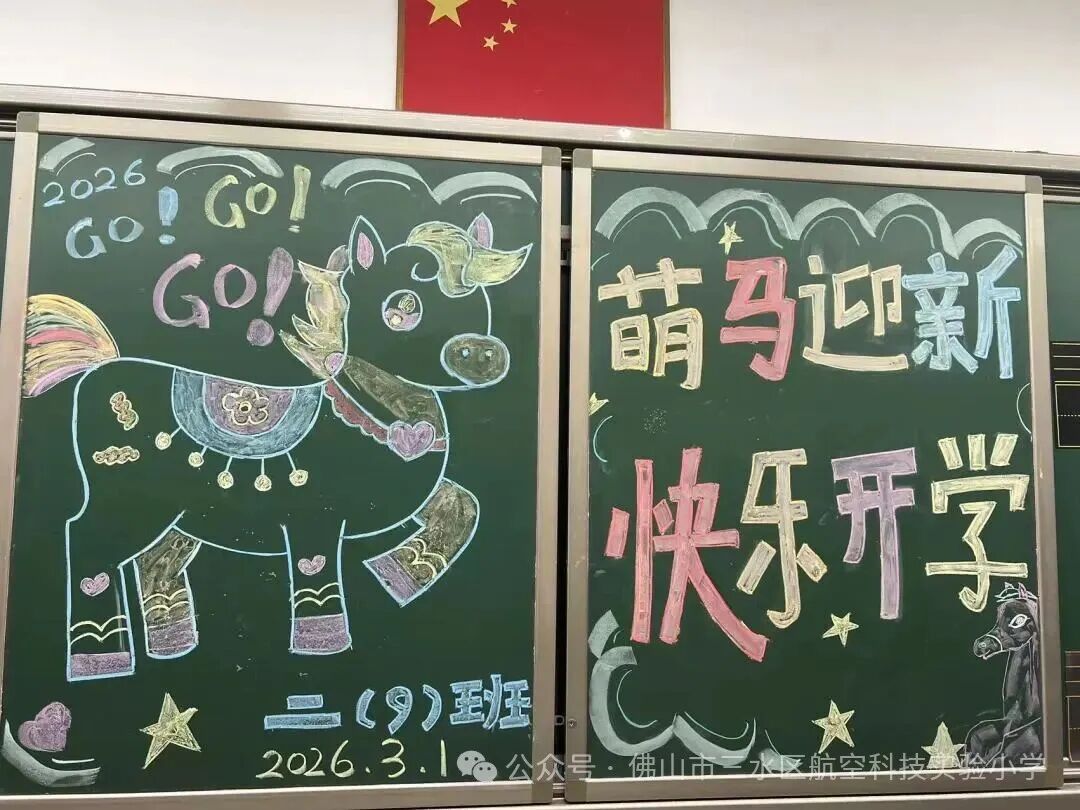 2026
GO! GO!
GO!
二(9)班
2026.3.1
萌马迎新
快乐开学
公众号·佛山市三水区航空科技实验小学